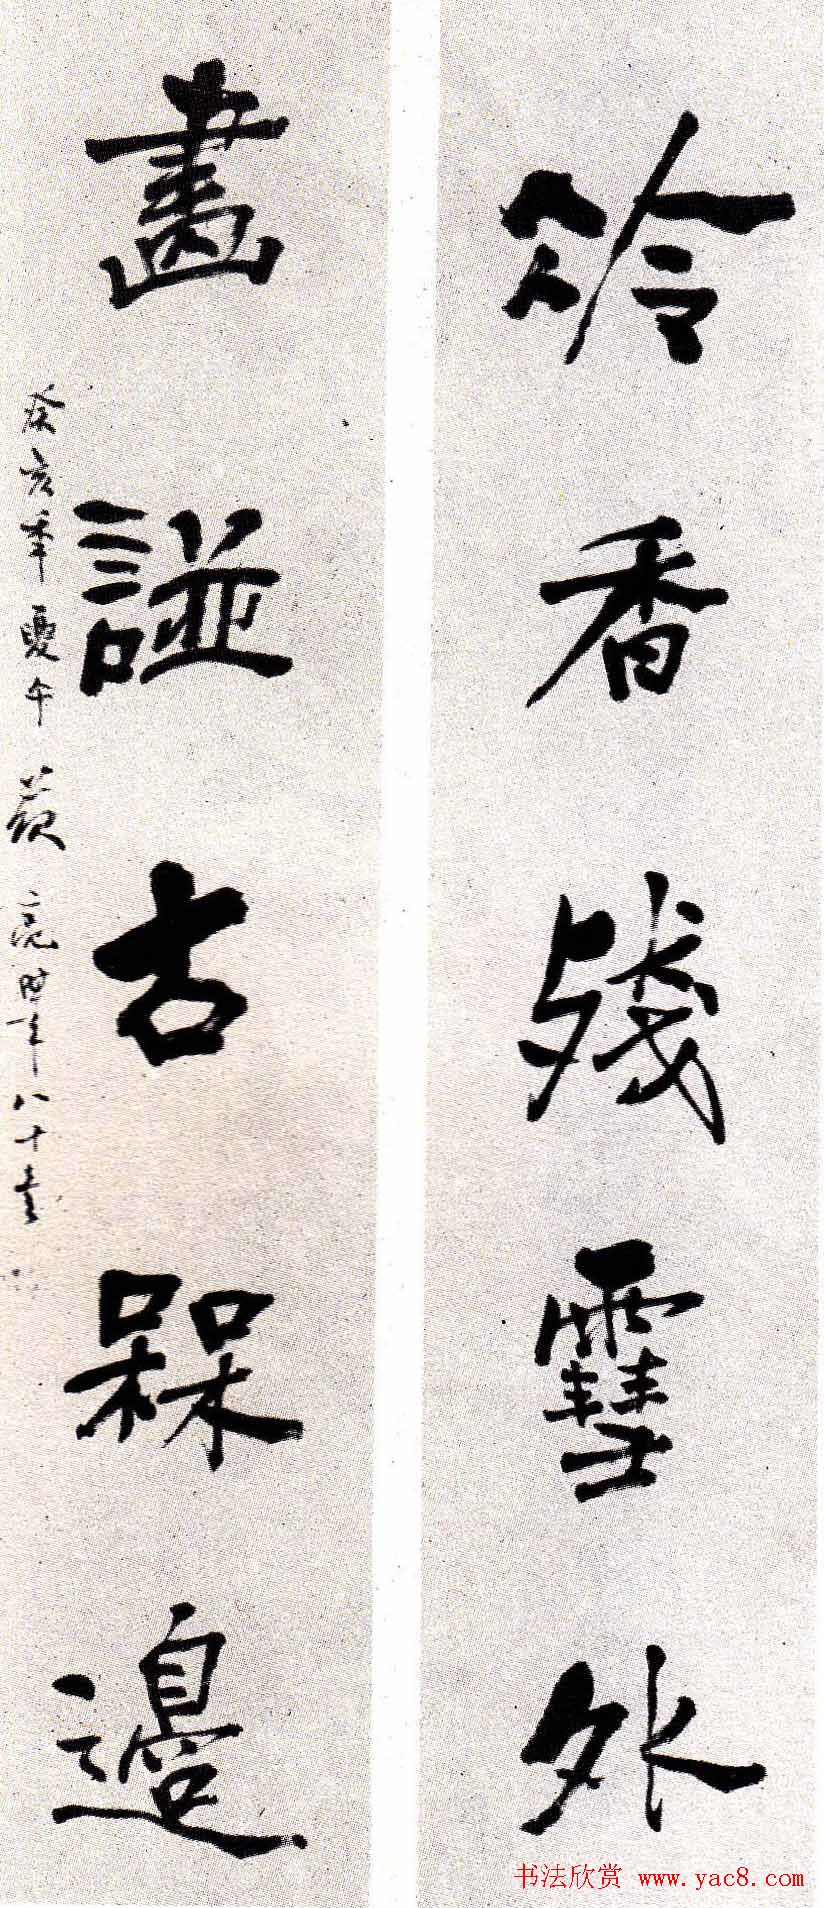 冷香殘雪外
畫譜古槑邊
癸亥年夏午 亮时年八十
书法欣赏 www.yac8.com